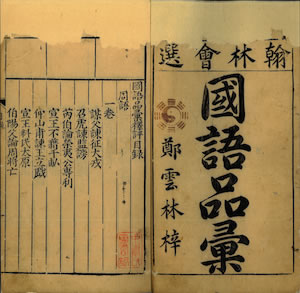 翰林會選
國語品彙
鄭雲林梓
國語品彙釋評目錄
周語
一卷
謀父諫征犬戎
召虎諫監謗
芮伯論榮夷公專利
宣王不籍千畝
仲山甫諫王立戲
宣王料民太原
伯陽父論周將亡